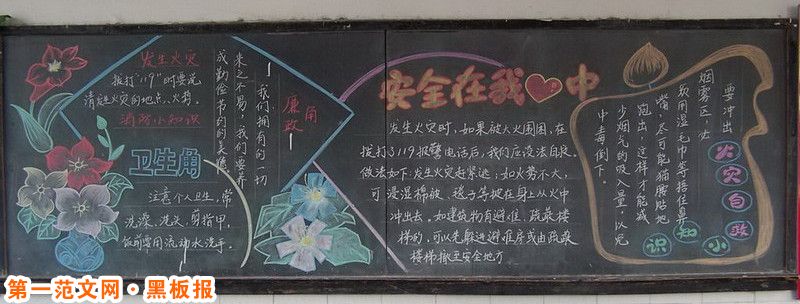 发生火灾
拨打"119"时要说
清发生火灾的地点、火势。
消防小知识
卫生角
注意个人卫生,常
洗澡、洗头、剪指甲,
饭前要用流动水洗手。
廉政角
我们拥有的一切
来之不易,我们要养
成勤俭节约的美德。
安全在我中
发生火灾时,如果被大火围困,在
拨打了119报警电话后,我们应设法自救。
做法如下:发生火灾赶紧逃;如火势不大,
可浸湿棉被、毯子等披在身上从火中
冲出去。如建筑物有避难、疏散楼
梯的,可以先躲进避难房或由疏散
楼梯撤至安全地方
要冲出
烟雾区,必
须用湿毛巾等捂住鼻
嘴,尽可能猫腰贴地
跑出,这样才能减
少烟气的吸入量,以免
中毒倒下。
火灾自救
小知识
第一范文网·黑板报